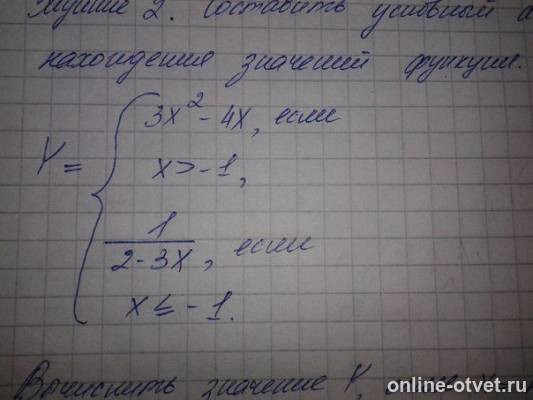 2. Составить условный
нахождения значений функции.
Y=
3x² - 4x, если
x > -1,
1
2 - 3x, если
x ≤ -1.
Вычислить значение Y,
online-otvet.ru